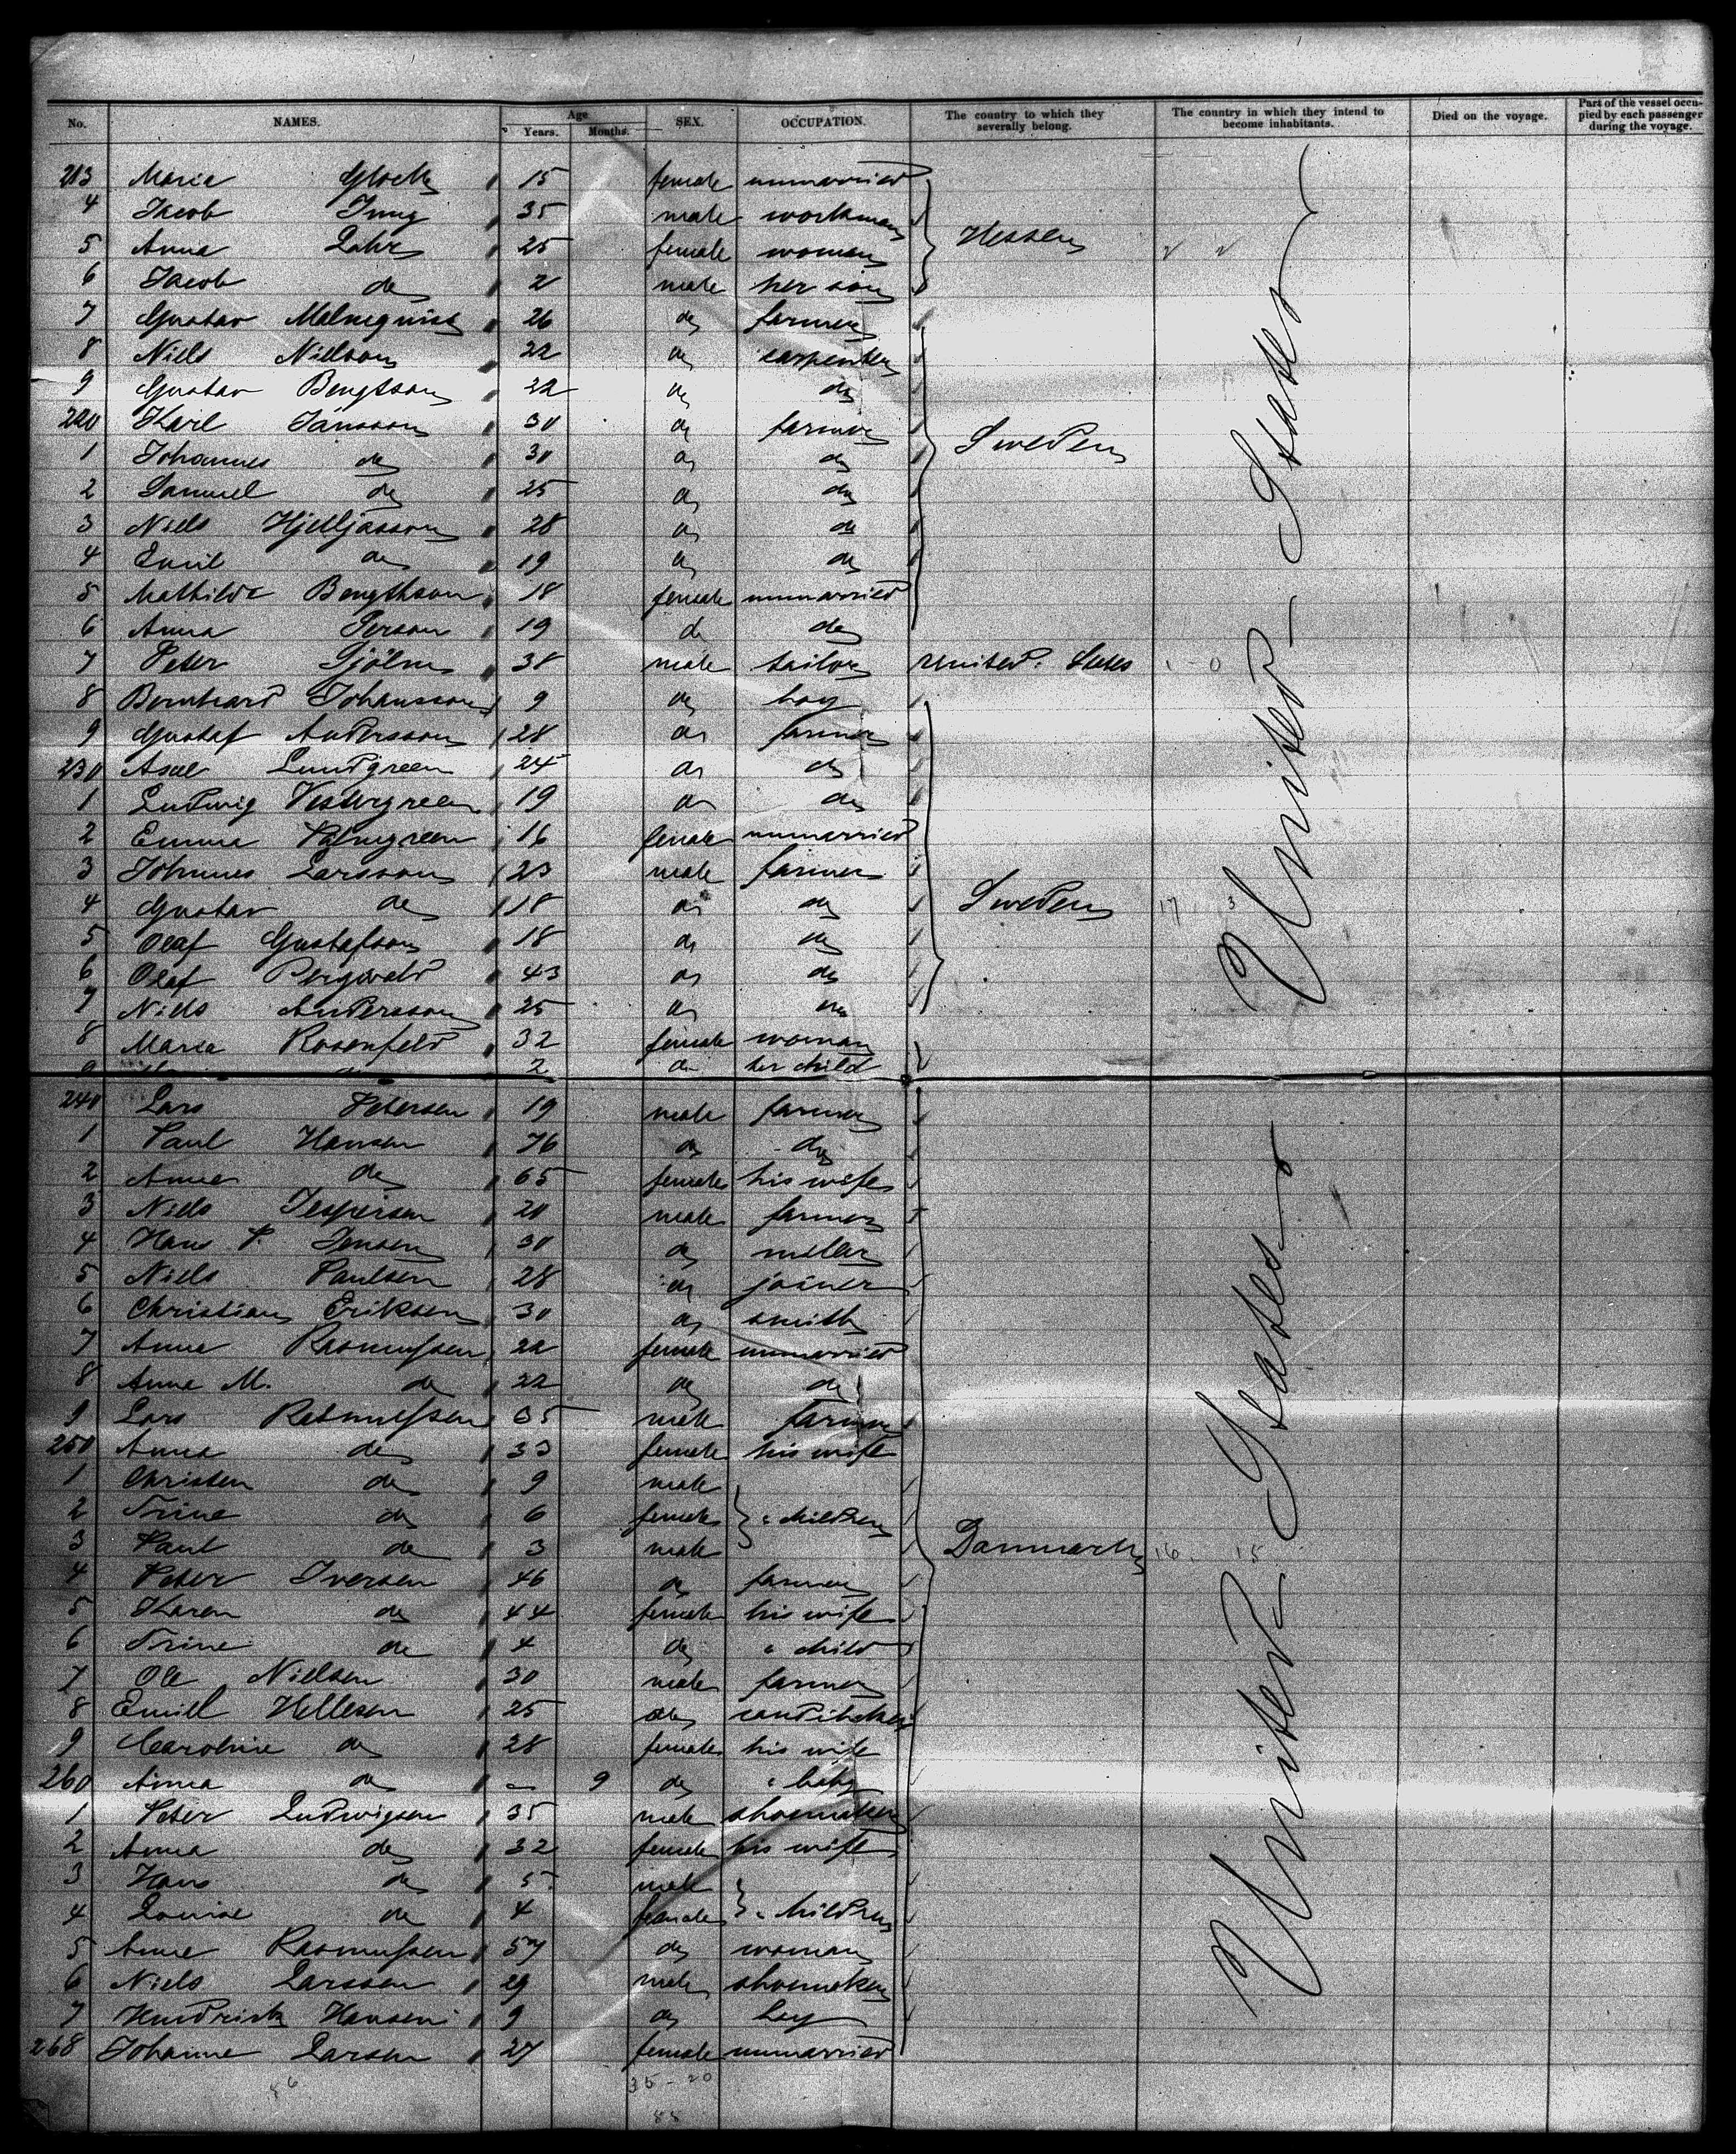 No. NAMES. Age Years. Months. SEX. OCCUPATION. The country to which they severally belong. The country in which they intend to become inhabitants. Died on the voyage. Part of the vessel occupied by each passenger during the voyage.
213 Maria Glock 15 female unmarried
4 Jacob Jung 35 male workman
5 Anna Lahr 25 female woman Hessen
6 Jacob do 2 male her son
7 Gustav Malmquist 26 do farmer
8 Niels Nielson 22 do carpenter
9 Gustav Bengtson 22 do do
220 Karl Jansson 30 do farmer Sweden
1 Johannes do 30 do do
2 Samuel do 25 do do
3 Niels 28 do do
4 Emil do 19 do do
5 Mathilde Bengthson 18 female unmarried
6 Anna Person 19 do do
7 Peter 38 male tailor United States
8 Bernhard Johansson 9 do boy
9 Gustaf Andersson 28 do farmer
230 Axel Lundgreen 24 do do
1 Ludwig Vestergreen 19 do do
2 Emma Palmgreen 16 female unmarried
3 Johannes Larsson 23 male farmer
4 Gustav do 18 do do Sweden
5 Olaf Gustafson 18 do do
6 Olaf 43 do do
7 Niels Andersson 25 do do
8 Maria Rosenfeld 32 female woman
2 do her child
United States
240 Lars Petersen 19 male farmer
1 Paul Hansen 76 do do
2 Anna do 65 female his wife
3 Niels Jespersen 20 male farmer
4 Hans P. Jensen 30 do miller
5 Niels Paulsen 28 do joiner
6 Christian Eriksen 30 do smith
7 Anna Rasmussen 22 female unmarried
8 Anna M. do 22 do do
9 Lars Rasmussen 35 male farmer
250 Anna do 33 female his wife
1 Christen do 9 male
2 Trine do 6 female " children
3 Paul do 3 male Danmark
4 Peter Iversen 46 do farmer
5 Karen do 44 female his wife
6 Trine do 4 do " child
7 Ole Nielsen 30 male farmer
8 Emill Hellesen 25 do
9 Caroline do 28 female his wife
260 Anna do - 9 do " baby
1 Peter Ludwigsen 35 male shoemaker
2 Anna do 32 female his wife
3 Hans do 5 male
4 Louise do 4 female " children
5 Anne Rasmussen 57 do woman
6 Niels Larssen 29 male shoemaker
7 Hendrick Hansen 9 do boy
268 Johanne Larsen 27 female unmarried
United States
35-20